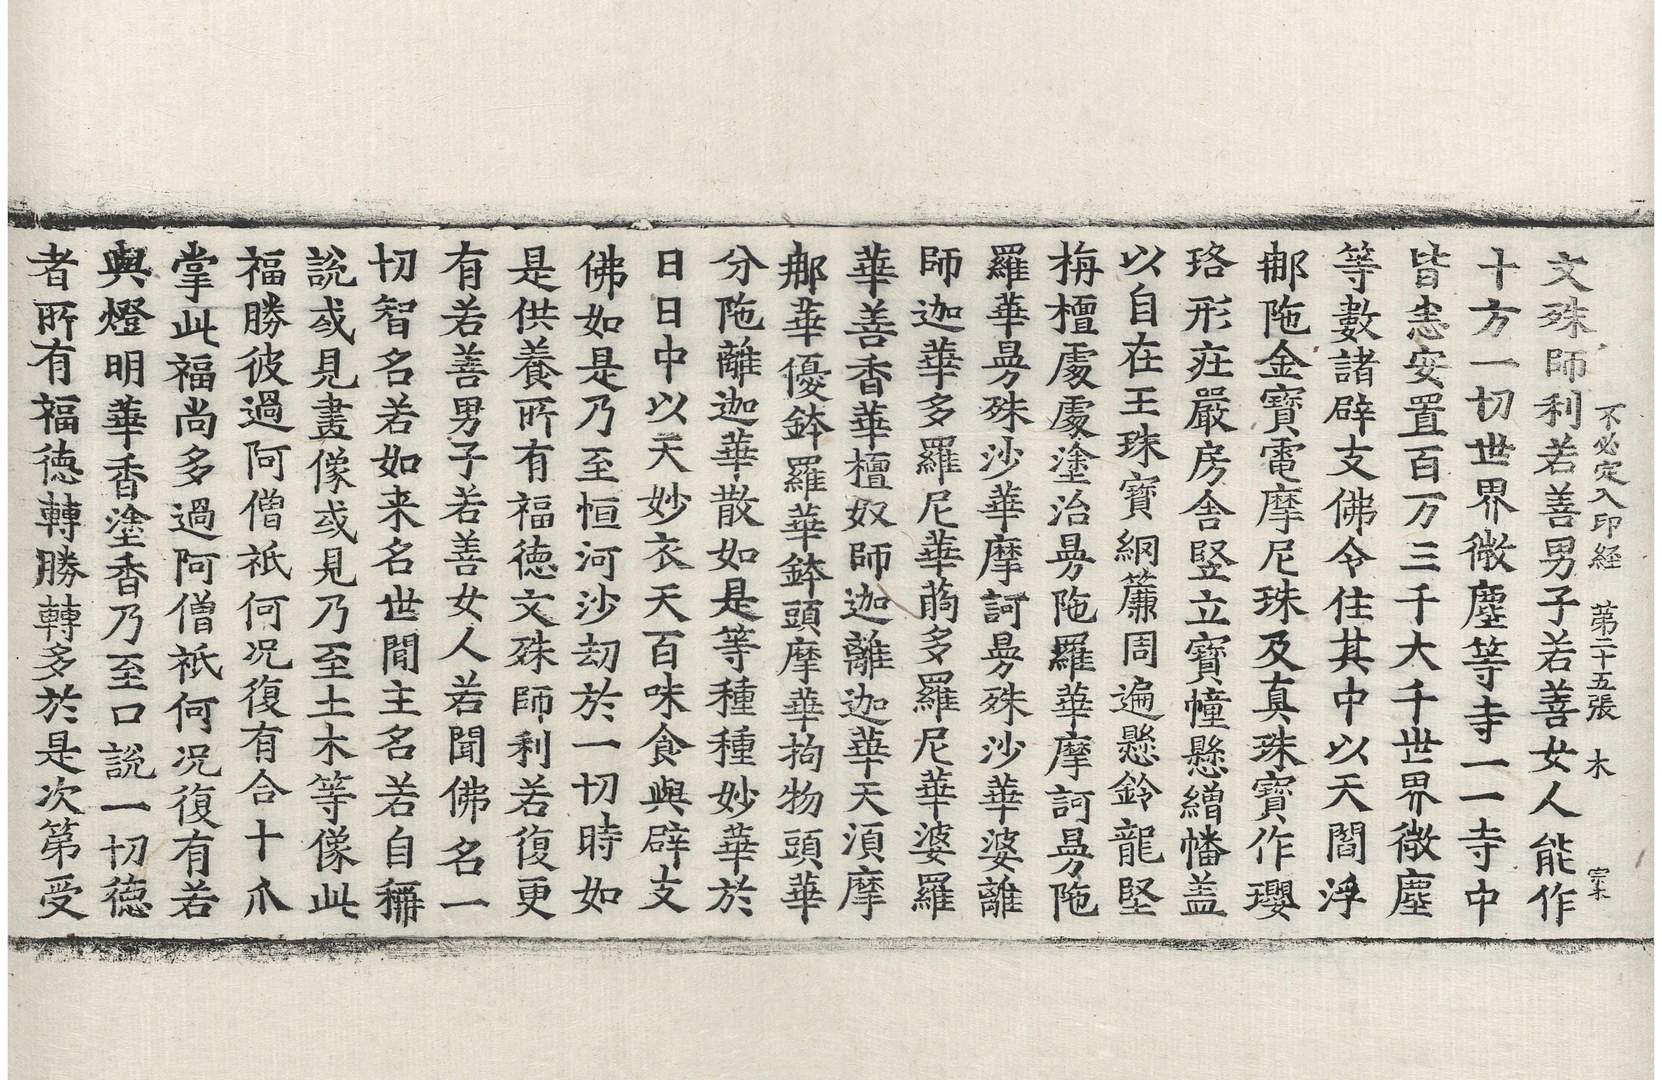 不必定入印経 第二十五張 木 宗木
文殊師利若善男子若善女人能作
十方一切世界微塵等寺一一寺中
皆悉安置百万三千大千世界微塵
等數諸辟支佛令住其中以天閻浮
那陁金寶電摩尼珠及真珠寶作瓔
珞形莊嚴房舍竪立寶幢懸繒幡盖
以自在王珠寶網簾周遍懸鈴龍堅
栴檀處處塗治曼陁羅華摩訶曼陁
羅華曼殊沙華摩訶曼殊沙華婆離
師迦華多羅尼華蒟多羅尼華婆羅
華善香華檀奴師迦離迦華天湏摩
那華優鉢羅華鉢頭摩華拘物頭華
分陁離迦華散如是等種種妙華於
日日中以天妙衣天百味食與辟支
佛如是乃至恒河沙劫於一切時如
是供養所有福德文殊師利若復更
有若善男子若善女人若聞佛名一
切智名若如来名世間主名若自稱
說或見畫像或見乃至土木等像此
福勝彼過阿僧祇何况復有合十爪
掌此福尚多過阿僧祇何况復有若
與燈明華香塗香乃至口說一切德
者所有福德轉勝轉多於是次第受